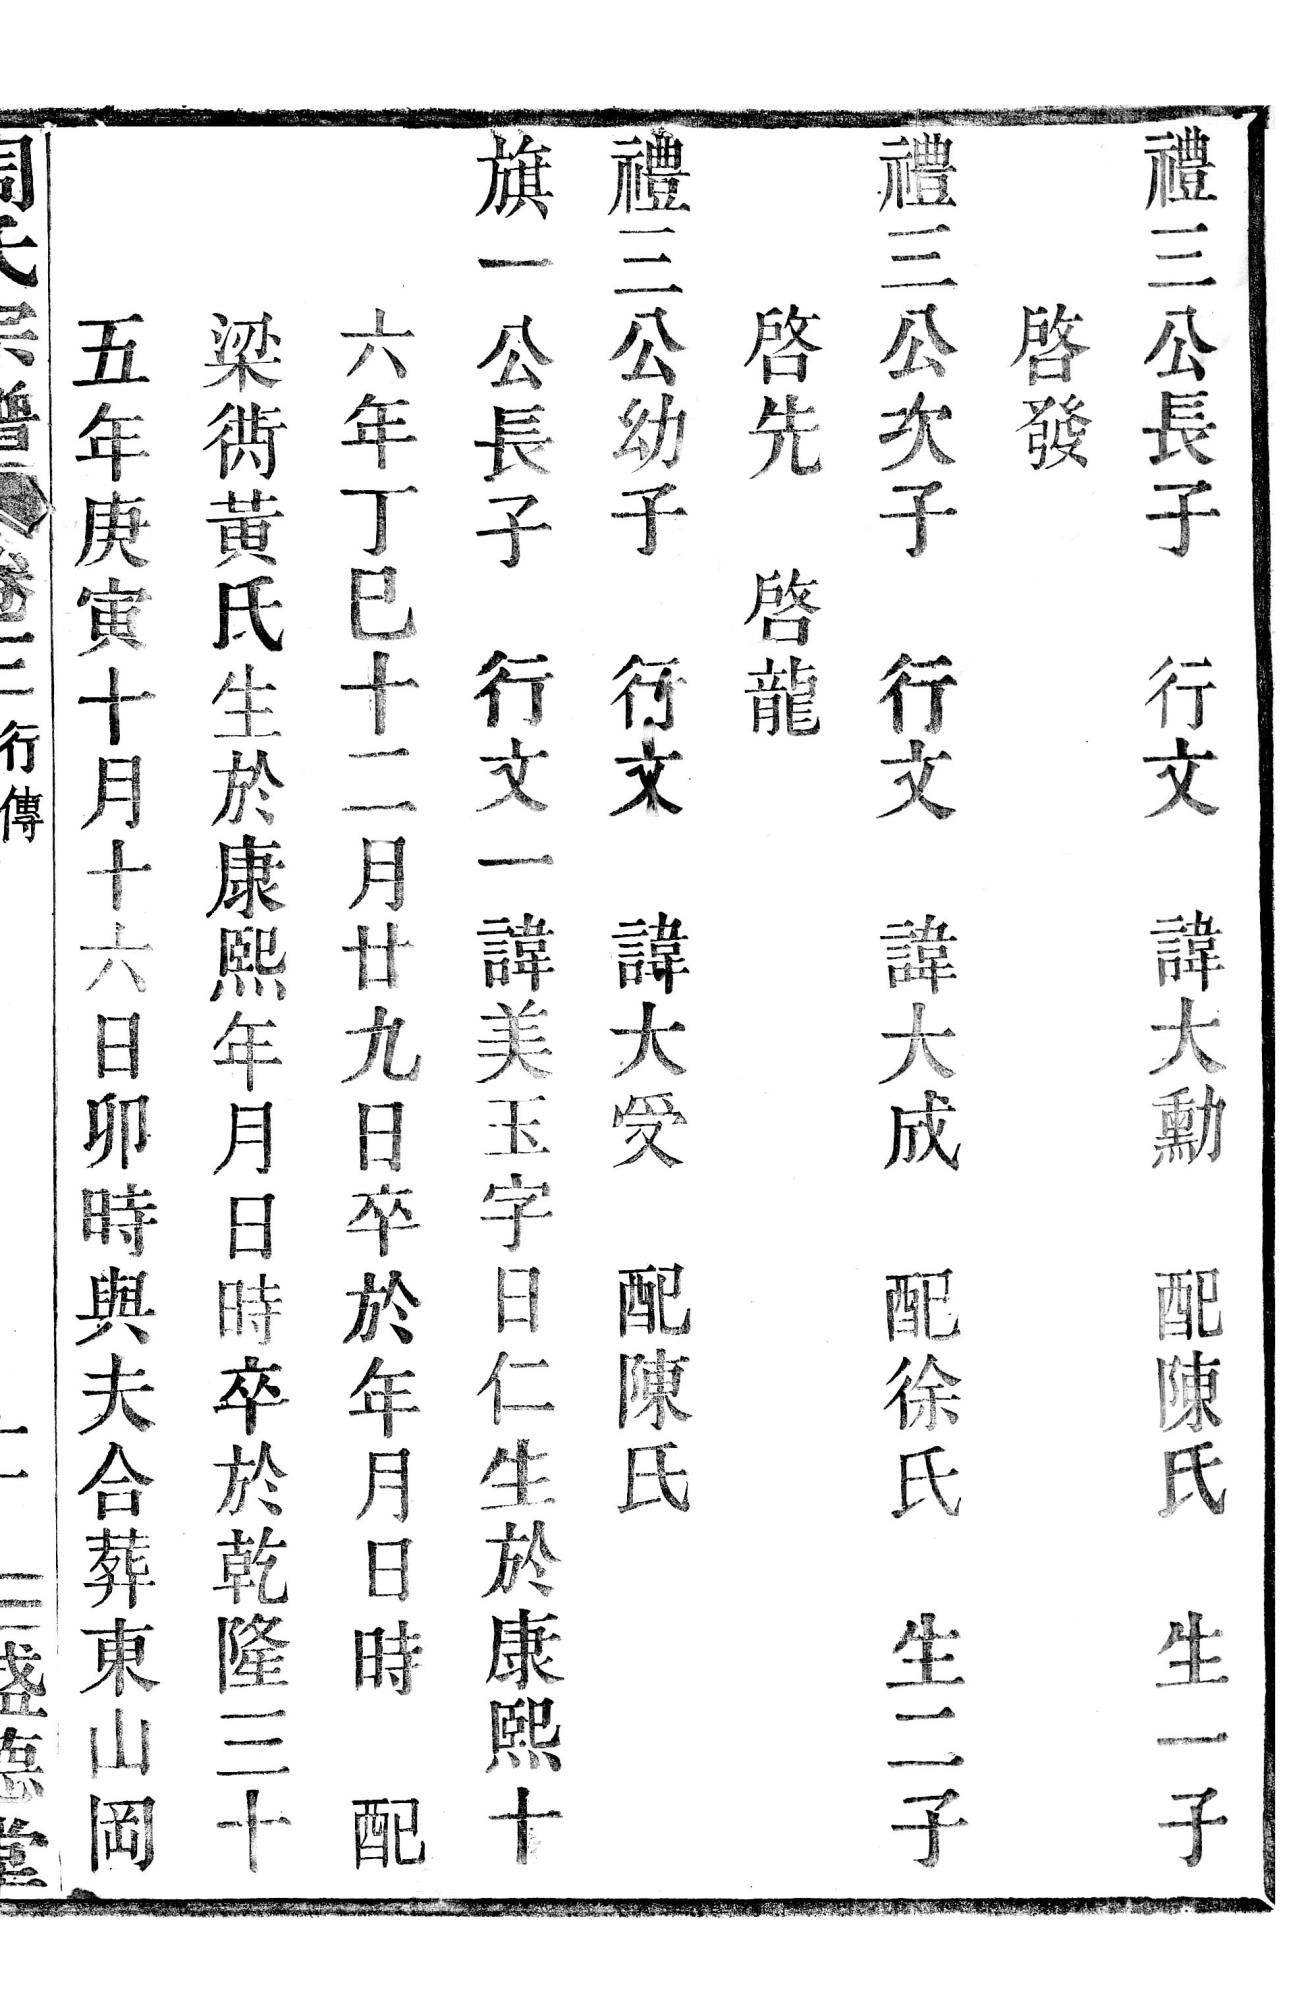 禮三公長子　行文　諱大勳　配陳氏　生一子
啓發
禮三公次子　行文　諱大成　配徐氏　生二子
啓先　啓龍
禮三公幼子　行文　諱大受　配陳氏
旗一公長子　行文一諱美玉字日仁生於康熙十
六年丁巳十二月廿九日卒於年月日時　配
梁衖黃氏生於康熙年月日時卒於乾隆三十
五年庚寅十月十六日卯時與夫合葬東山岡
周氏宗譜　卷三　行傳　十一　三盛德堂